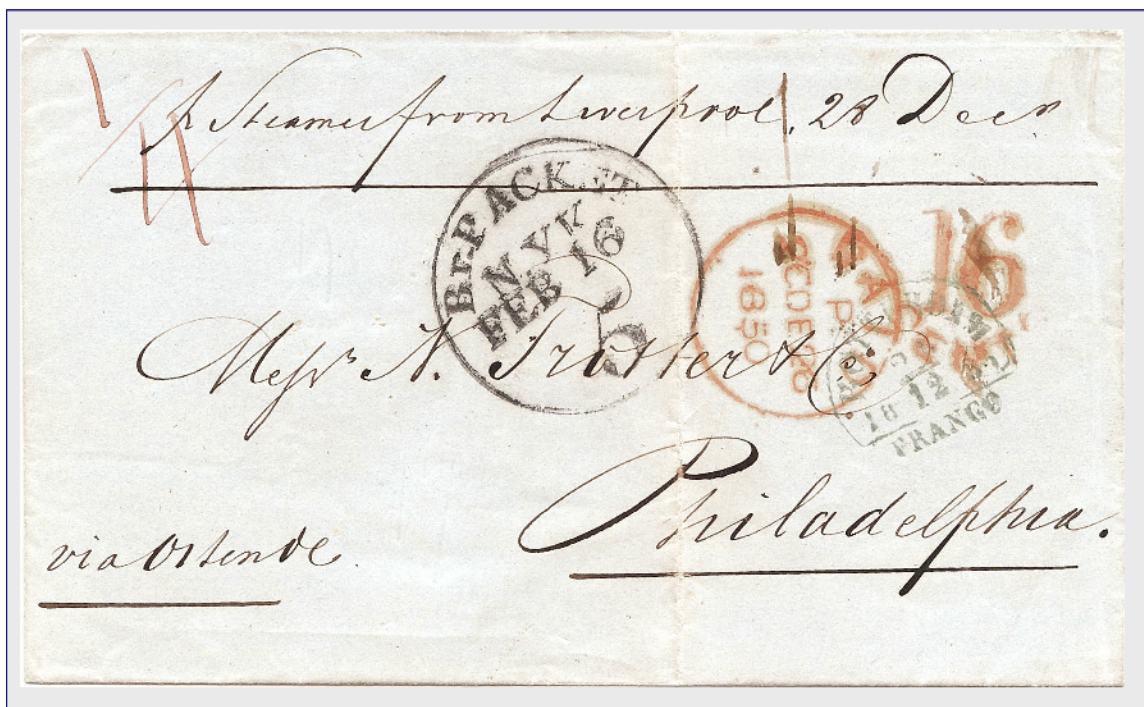 p Steamer from Liverpool, 28 Decr
Br. PACKET
N. YK.
FEB 16
PAID
CC DE 26
1850
16
CENTS
18 12
FRANCO
Messrs N. Trotter & Co.
Philadelphia.
via Ostende.